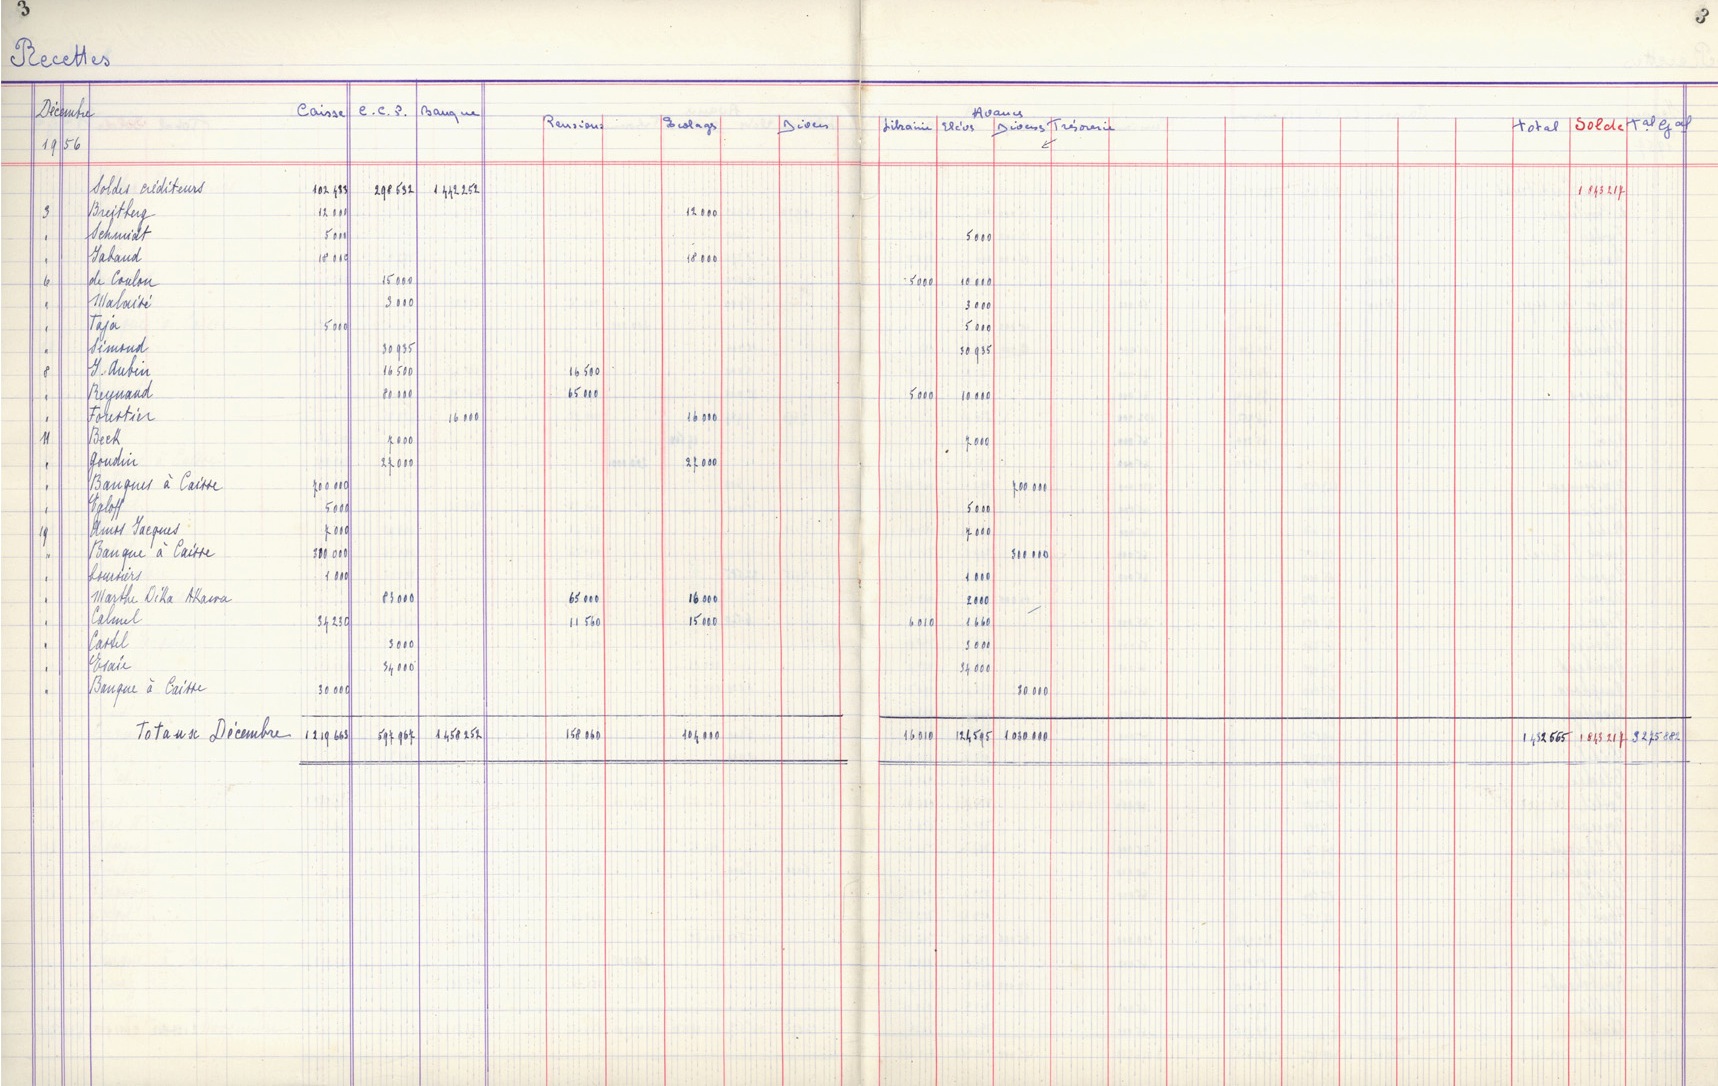 3 3
Recettes
Décembre Caisse C.C.P. Banque Avances
Pensions Ecolages Divers Librairie Elèves Divers Trésorerie Total Solde Tal Gal
1956
Soldes créditeurs 102 433 298 532 1 442 252 1 843 217
3 Breitberg 12 000 12 000
" Schmidt 5 000 5 000
" Gabaud 18 000 18 000
6 de Coulon 15 000 5 000 10 000
" Malaisé 3 000 3 000
" Taja 5 000 5 000
" Simond 30 935 30 935
8 G. Aubin 16 500 16 500
" Reynaud 80 000 65 000 5 000 10 000
" Forestier 16 000 16 000
11 Beck 7 000 7 000
" Goudin 27 000 27 000
" Banques à Caisse 700 000 700 000
" Egloff 5 000 5 000
19 Amos Jacques 7 000 7 000
" Banque à Caisse 300 000 300 000
" boursiers 1 000 1 000
" Marthe Dika Akawa 83 000 65 000 16 000 2 000
" Calmel 34 230 11 560 15 000 6 010 1 660
" Castel 3 000 3 000
" Esaïe 34 000 34 000
" Banque à Caisse 30 000 30 000
Totaux Décembre 1 219 663 597 967 1 458 252 158 060 104 000 16 010 124 595 1 030 000 1 432 665 1 843 217 3 275 882